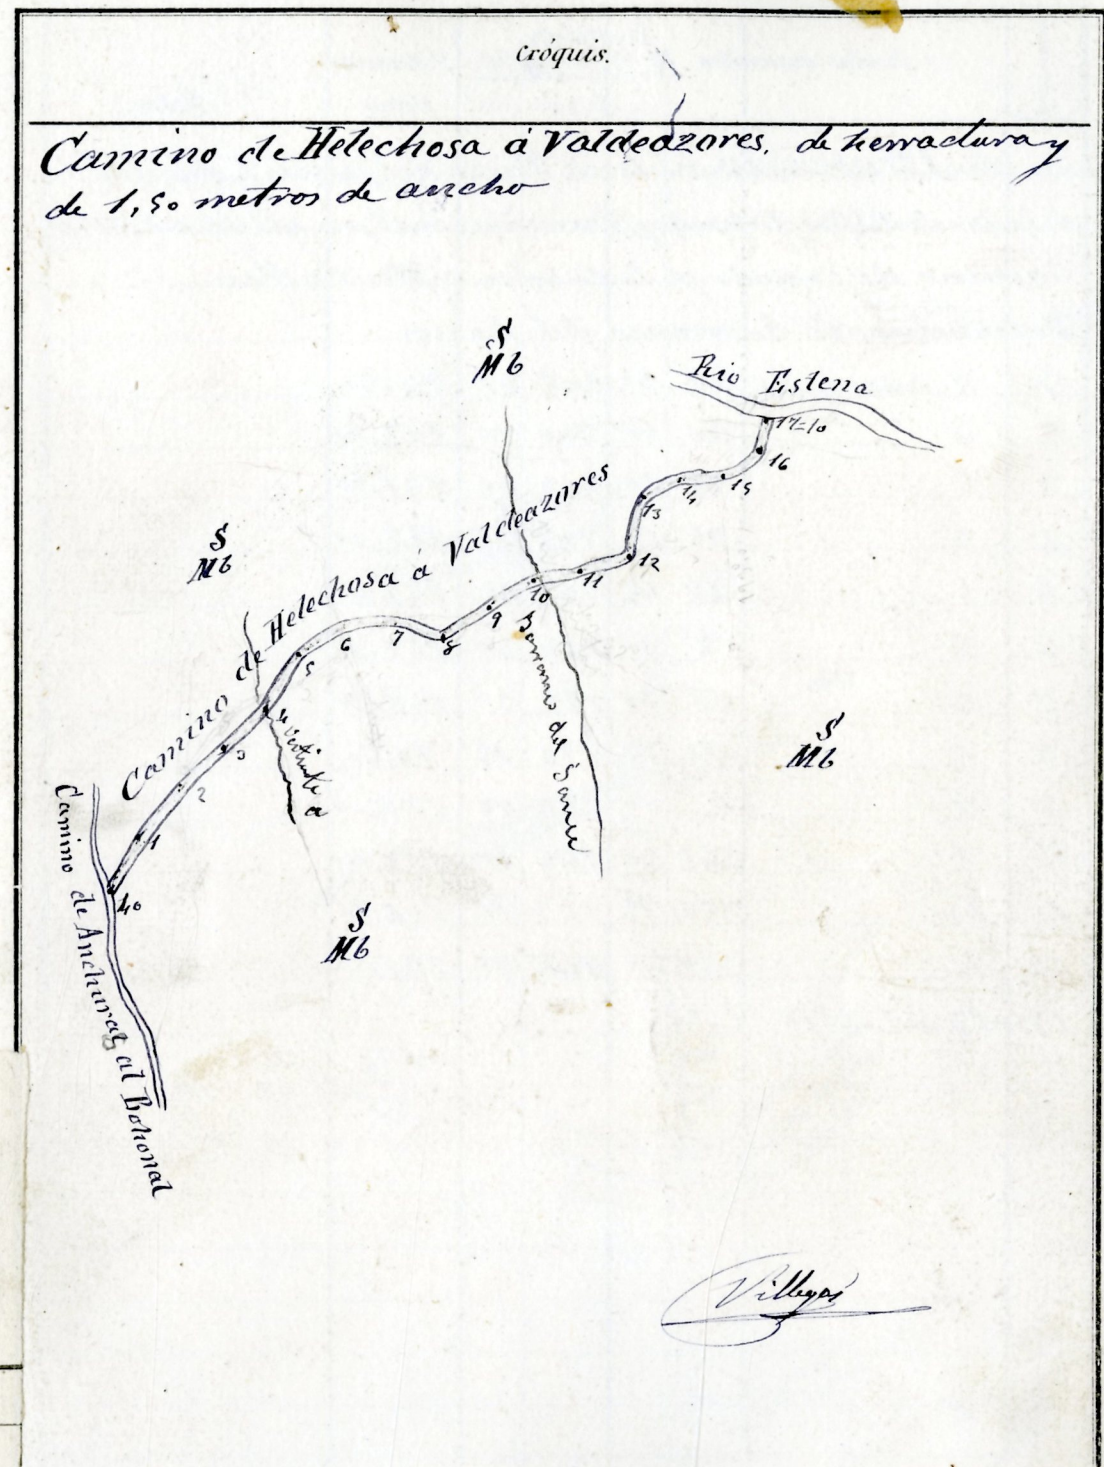 Cróquis.
Camino de Helechosa á Valdeazores, de herradura y
de 1,50 metros de ancho
S
Mb
Rio Estena
17=10
16
15
14
13
12
11
10
9
8
7
6
5
4
3
2
1
Camino de Helechosa á Valdeazores
S
Mb
Barranco del
S
Mb
S
Mb
Camino de Anchuras al Bohonal
Villegas